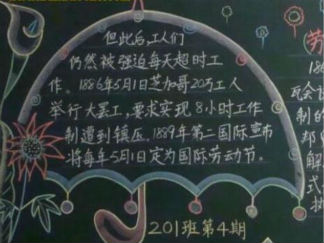 但此后,工人们
仍然被强迫每天超时工
作。1886年5月1日芝加哥20万工人
举行大罢工,要求实现8小时工作
制遭到镇压。1889年第二国际宣布
将每年5月1日定为国际劳动节。
201班第4期
劳
186
瓦会议
制的
邦
解
式